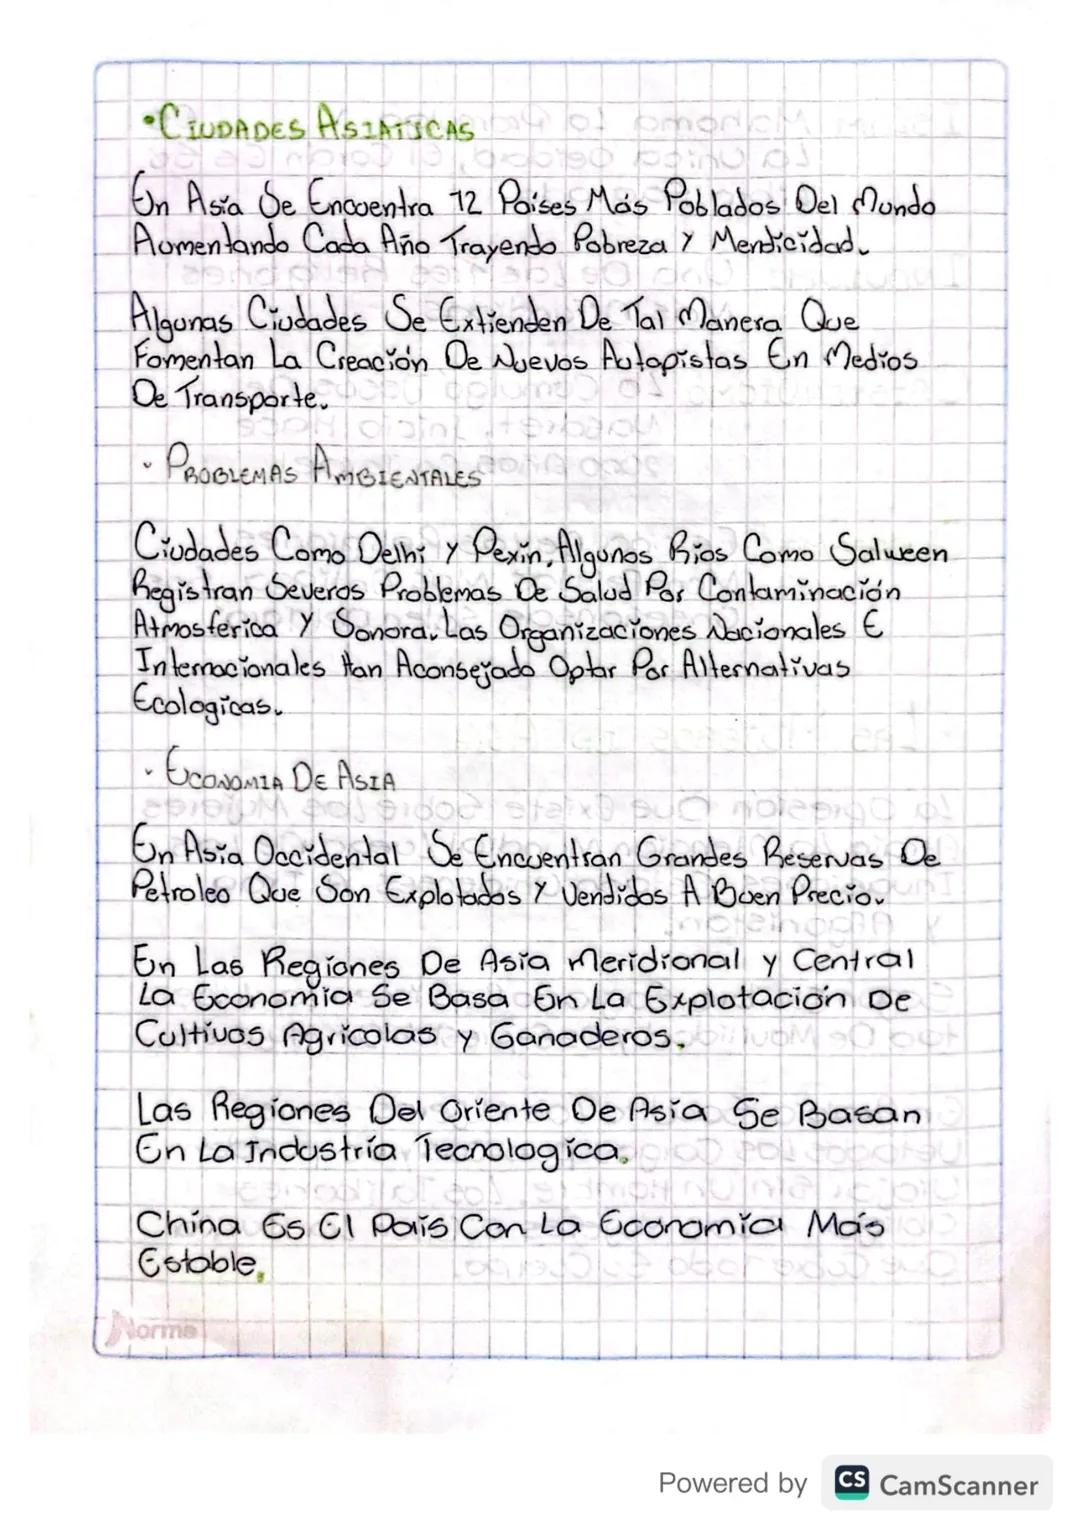 •Ciudades Asiaticas
En Asía Se Encuentra 12 Países Más Poblados Del Mundo
Aumentando Cada Año Trayendo Pobreza Y Mendicidad.
Algunas Ciudades Se Extienden De Tal Manera Que
Fomentan La Creación De Nuevos Autapistas En Medios
De Transporte.
• Problemas Ambientales
Ciudades Como Delhi Y Pexin, Algunos Ríos Como Salween
Registran Severos Problemas De Salud Por Contaminación
Atmosferica Y Sonora. Las Organizaciones Nacionales E
Internacionales Han Aconsejado Optar Por Alternativas
Ecologicas.
• Economia De Asia
En Asía Occidental Se Encuentran Grandes Reservas De
Petroleo Que Son Explotados Y Vendidos A Buen Precio.
En Las Regiones De Asía Meridional y Central
La Economía Se Basa En La Explotación De
Cultivos Agrícolas y Ganaderos.
Las Regiones Del Oriente De Asía Se Basan
En La Industría Tecnologica.
China Es El País Con La Economía Más
Estable.
Norma
Powered by CS CamScanner